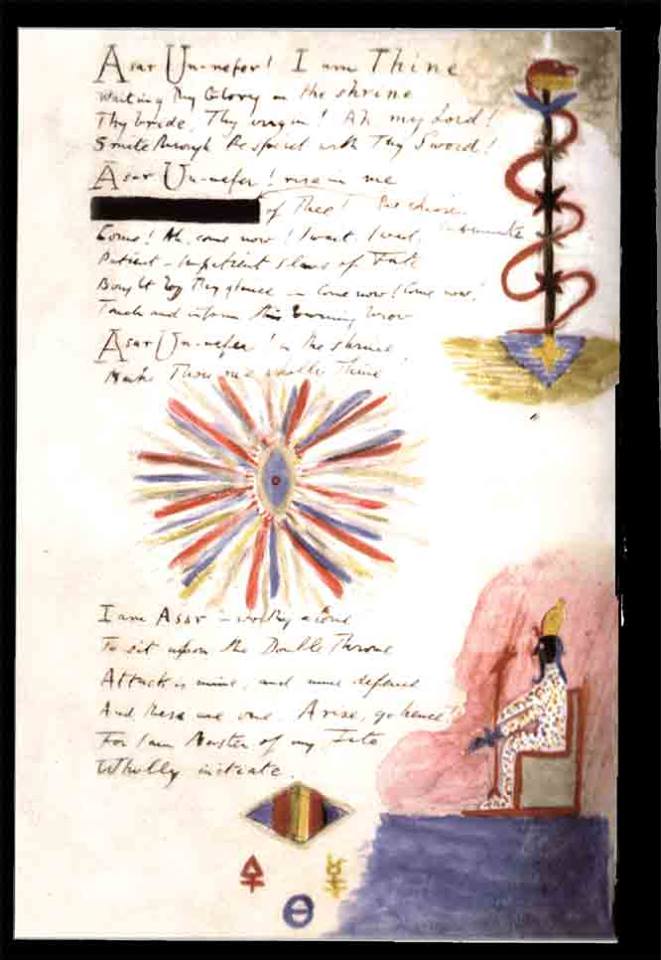 Asar Un-nefer! I am Thine
Waiting Thy Glory in the shrine
Thy bride, Thy virgin! Ah my Lord!
Smite through the spirit with Thy Sword!
Asar Un-nefer! rise in me
of Thee! The chosen
Come! Ah, come now! I wait, I wait,
Patient - impatient slave of Fate
Bought by Thy glance - Come now! Come now!
Touch and inform this burning brow
Asar Un-nefer! in the shrine
Make Thou me wholly Thine!
I am Asar - worthy alone
To sit upon the Double Throne
Attack is mine, and mine defence
And these are one. Arise, go hence!
For I am Master of my Fate
Wholly initiate.